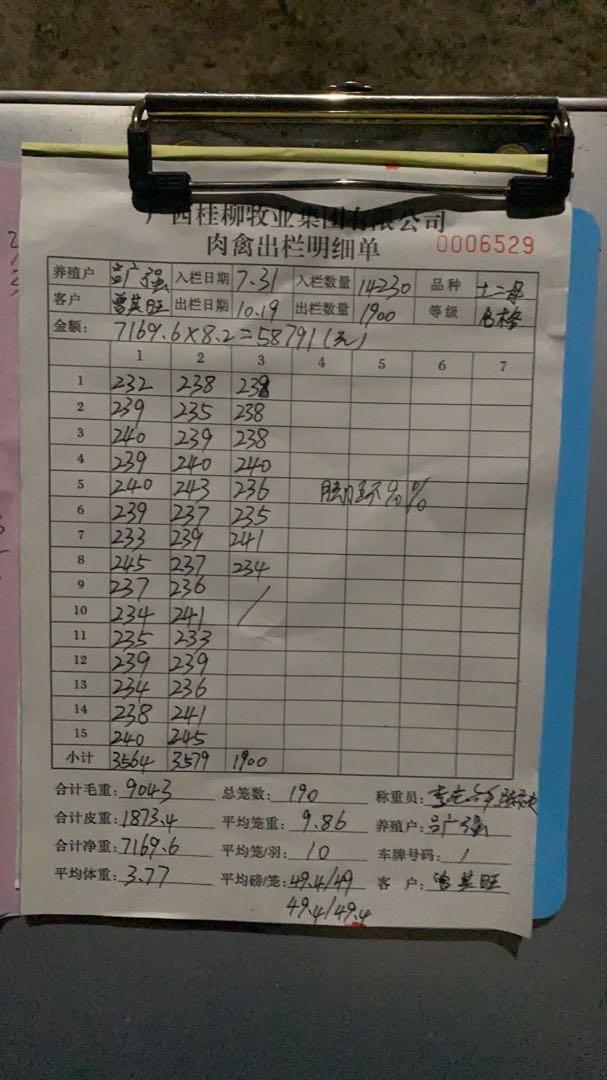 广西桂柳牧业集团有限公司
肉禽出栏明细单 0006529
养殖户 吕广强 入栏日期 7.31 入栏数量 14230 品种 土二号
客户 曾英旺 出栏日期 10.19 出栏数量 1900 等级 合格
金额: 7169.6×8.2=58791(元)
1 2 3 4 5 6 7
1 232 238 238
2 239 235 238
3 240 239 238
4 239 240 240
5 240 243 236 %
6 239 237 235
7 233 239 241
8 245 237 234
9 237 236 /
10 234 241
11 235 233
12 239 239
13 234 236
14 238 241
15 240 245
小计 3564 3579 1900
合计毛重: 9043 总笼数: 190 称重员:
合计皮重: 1873.4 平均笼重: 9.86 养殖户: 吕广强
合计净重: 7169.6 平均笼/羽: 10 车牌号码: /
平均体重: 3.77 平均磅/笼: 49.4/49 客 户: 曾英旺
49.4/49.4